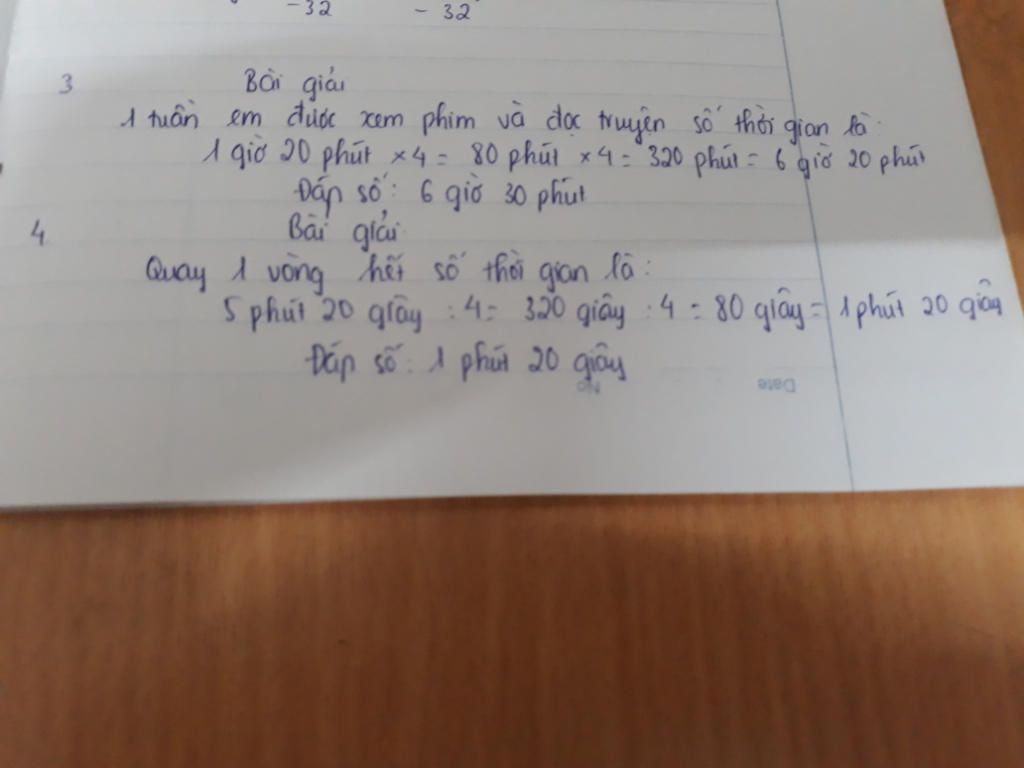 -32 - 32
3 Bài giải
1 tuần em được xem phim và đọc truyện số thời gian là:
1 giờ 20 phút ×4 = 80 phút ×4 = 320 phút = 6 giờ 20 phút
Đáp số: 6 giờ 30 phút
4 Bài giải
Quay 1 vòng hết số thời gian là:
5 phút 20 giây :4= 320 giây :4 = 80 giây = 1 phút 20 giây
Đáp số: 1 phút 20 giây
No
Date